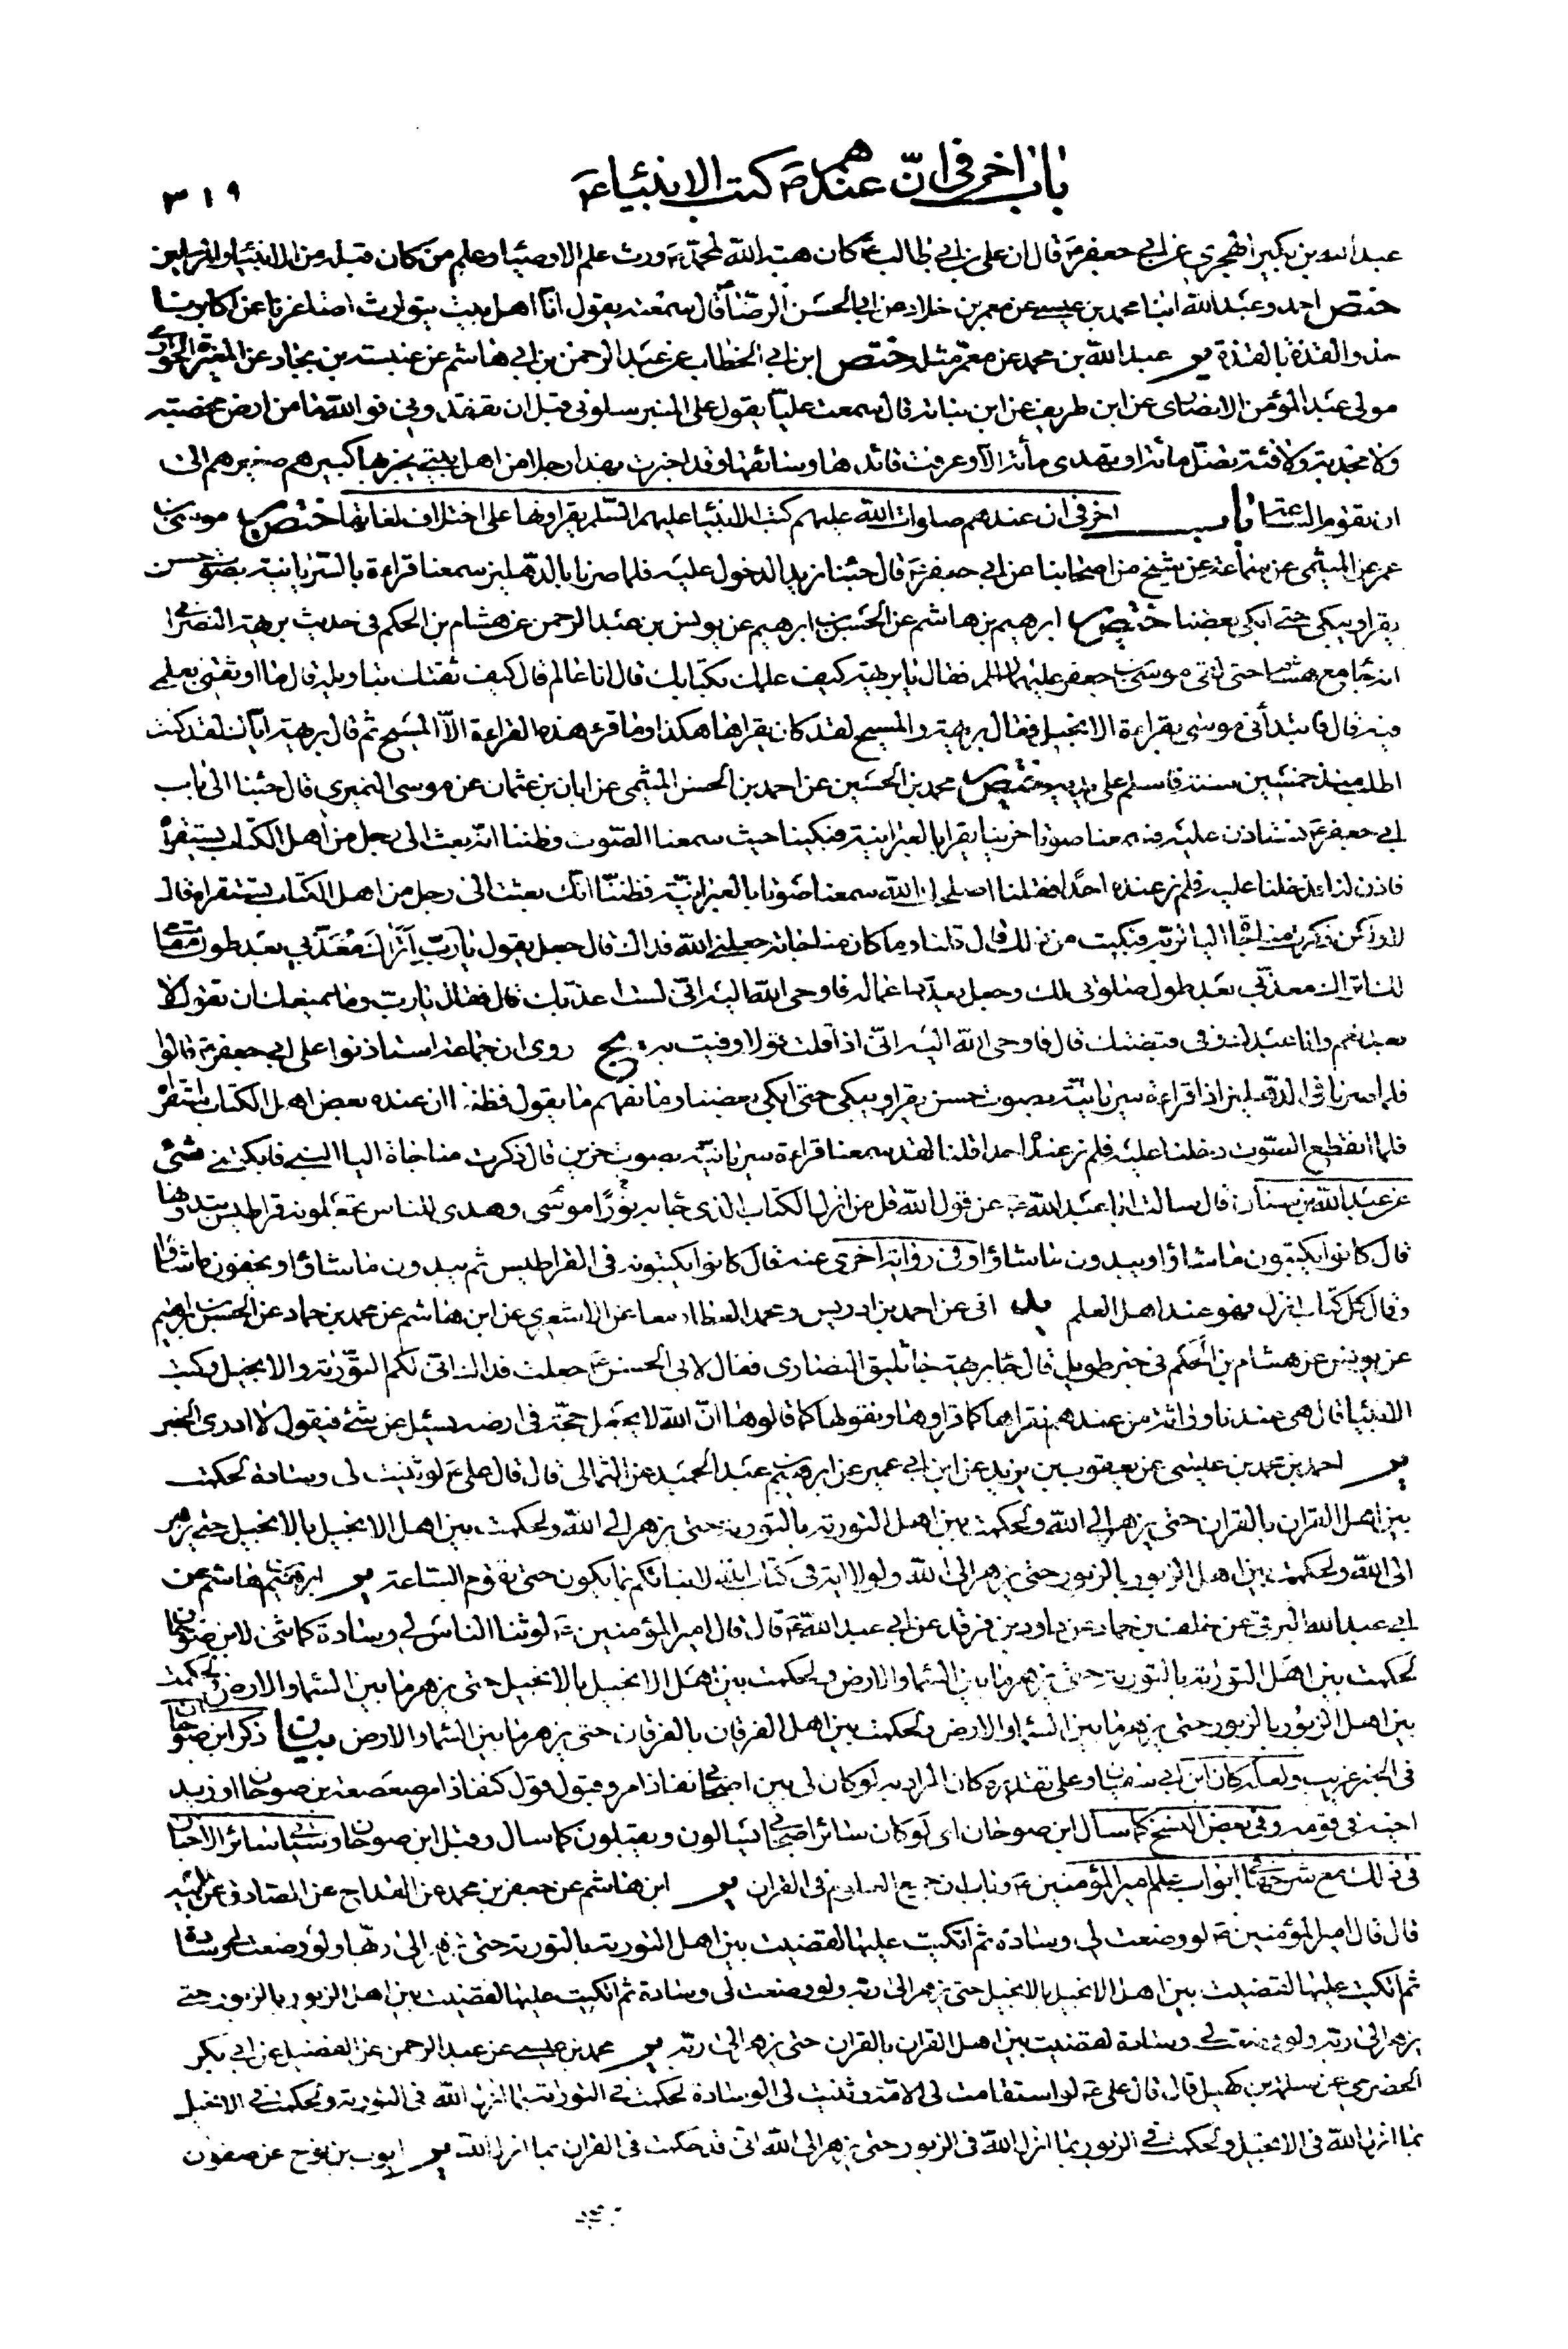 باب اخر فی انّ عندهم ص كتب الانبياء ع
٣١٩
عبد الله بن بكير الهجري عن ابي جعفر ع قال ان علي بن ابي طالب ع كان هبة الله لمحمد ص ورث علم الاوصيا وعلم من كان قبله من الانبيا والمرسلين
ختص احمد وعبد الله ابنا محمد بن عيسى عن معمر بن خلاد عن ابي الحسن الرضا ع قال سمعته يقول انا اهل بيت يتوارث اصاغرنا عن اكابرنا
حذو القذة بالقذة ير عبد الله بن محمد عن معمر مثله ختص ابن ابي الخطاب عن عبد الرحمن بن ابي هاشم عن عنبسة بن بجاد عن المغيرة
مولى عبد المؤمن الانصاى عن ابن طريف عن ابن نباتة قال سمعت عليا يقول على المنبر سلوني قبل ان تفقدوني فوالله ما من ارض مخصبة
ولا مجدبة ولا فئة تضل مائة او تهدى مائة الا وعرفت قائدها وسائقها وقد اخبرت بهذا رجلا من اهل بيتي يخبر بها كبيرهم صغيرهم الى
ان تقوم الساعة باب اخر في ان عندهم صلوات الله عليهم كتب الانبيا عليهم السلم يقراونها على اختلاف لغاتها ختص موسى بن
عمر عن الميثمي عن سماعة عن شيخ من اصحابنا عن ابي جعفر ع قال جئنا نريد الدخول عليه فلما صرنا بالدهليز سمعنا قراءة بالسريانية بصوت حسن
يقرا ويبكي حتى ابكى بعضنا ختص ابرهيم بن هاشم عن الحسن بن ابرهيم عن يونس بن عبد الرحمن عن هشام بن الحكم في حديث بريهة النصراني
انه جا مع هشام حتى لقي موسى بن جعفر عليهما السلم فقال يا بريهة كيف علمك بكتابك قال انا عالم قال كيف ثقتك بتاويله قال ما اوثقني بعلمي
فيه قال فابتدأني موسى بقراءة الانجيل فقال بريهة والمسيح لقد كان يقراها هكذا وما قرء هذه القراءة الا المسيح ثم قال بريهة اياك لقد كنت
اطلب منذ خمسين سنة فاسلم على يديه ختص محمد بن الحسين عن احمد بن الحسن الميثمي عن ابان بن عثمان عن موسى النميري قال جئنا الى باب
ابي جعفر ع نستاذن عليه فسمعنا صوتا حزينا يقرا بالعبرانية فبكينا حيث سمعنا الصوت وظننا انه بعث الى رجل من اهل الكتاب يستقرأه
فاذن لنا فدخلنا عليه فلم نر عنده احدا فقلنا اصلحك الله سمعنا صوتا بالعبرانية فظننا انك بعثت الى رجل من اهل الكتاب يستقراه قال
لا ولكن ذكرت مناجاة اليا لربه فبكيت من ذلك قال قلنا وما كان مناجاته جعلني الله فداك قال جعل يقول يا رب اتراك معذبي بعد طول مقامي
لك اتراك معذبي بعد طول صلوتي لك وجعل يعدد اعماله فاوحى الله اليه اني لست اعذبك قال فقال يا رب وما يمنعك ان تقول لا
بعد نعم وانا عبدك وفي قبضتك قال فاوحى الله اليه اني اذا قلت قولا وفيت به يج روى ان جماعة استاذنوا على ابي جعفر ع قالوا
فلما صرنا في الدهليز اذا قراءة سريانية بصوت حسن يقرا ويبكي حتى ابكى بعضنا وما نفهم ما يقول فظننا ان عنده بعض اهل الكتاب
فلما انقطع الصوت دخلنا عليه فلم نر عنده احدا قلنا لقد سمعنا قراءة سريانية بصوت حزين قال ذكرت مناجاة اليا النبي فابكتني شي
عن عبد الله بن سنان قال سالت ابا عبد الله ع عن قول الله قل من انزل الكتاب الذي جا به نورا موسى وهدى للناس تجعلونه قراطيس تبدونها
قال كانوا يكتمون ما شاؤا ويبدون ما شاؤا وفي رواية اخرى عنه قال كانوا يكتبونه في القراطيس ثم يبدون ما شاؤا ويخفون ما شاؤا
وقال كل كتاب انزل فهو عند اهل العلم يد ابي عن احمد بن ادريس ومحمد العطار معا عن الاشعري عن ابن هاشم عن محمد بن حماد عن الحسن بن ابرهيم
عن يونس عن هشام بن الحكم في خبر طويل قال جا بريهة جاثليق النصارى فقال لابي الحسن ع جعلت فداك انى لكم التورية والانجيل وكتب
الانبيا قال هي عندنا وراثة من عندهم نقراها كما قراوها ونقولها كما قالوها ان الله لا يجعل حجة في ارضه يسئل عن شئ فيقول لا ادرى الخبر
ير احمد بن محمد بن عيسى عن يعقوب بن يزيد عن ابن ابي عمير عن ابرهيم بن عبد الحميد عن الثمالي قال قال علي ع لو ثنيت لى وسادة لحكمت
بين اهل القران بالقران حتى يزهر الى الله ولحكمت بين اهل التورية بالتورية حتى يزهر الى الله ولحكمت بين اهل الانجيل بالانجيل حتى يزهر
الى الله ولحكمت بين اهل الزبور بالزبور حتى يزهر الى الله ولولا اية في كتاب الله لانباتكم بما يكون حتى تقوم الساعة ير ابرهيم بن هاشم عن
ابي عبد الله البرقي عن خلف بن حماد عن داود بن فرقد عن ابي عبد الله ع قال قال امير المؤمنين ع لو ثنا الناس لي وسادة كما ثنى لابن صوحان
لحكمت بين اهل التورية بالتورية حتى يزهر ما بين السما والارض ولحكمت بين اهل الانجيل بالانجيل حتى يزهر ما بين السما والارض ولحكمت
بين اهل الزبور بالزبور حتى يزهر ما بين السما والارض ولحكمت بين اهل الفرقان بالفرقان حتى يزهر ما بين السما والارض بيان ذكر ابن صوحان
في الخبر غريب ولعله كان ابن ابي سفيان وعلى تقديره كان المراد به لو كان لي بين اصحابي نفاذ امر وقبول قول كنفاذ امر صعصعة بن صوحان او زيد
اخيه في قومه وفي بعض النسخ كما سال ابن صوحان اى لو كان سائر اصحابي يسالون ويقبلون كما سال وقبل ابن صوحان وسياتي سائر الاخبار
في ذلك مع شرحها في ابواب علم امير المؤمنين ع وباب ان جميع العلوم في القران ير ابن هاشم عن جعفر بن محمد عن القداح عن الصادق عن ابيه
قال قال امير المؤمنين ع لو وضعت لي وسادة ثم اتكيت عليها لقضيت بين اهل التورية بالتورية حتى يزهر الى ربها ولو وضعت لي وسادة
ثم اتكيت عليها لقضيت بين اهل الانجيل بالانجيل حتى يزهر الى ربه ولو وضعت لى وسادة ثم اتكيت عليها لقضيت بين اهل الزبور بالزبور حتى
يزهر الى ربه ولو وضعت لي وسادة لقضيت بين اهل القران بالقران حتى يزهر الى ربه ير محمد بن عيسى عن عبد الرحمن عن الفضيل عن ابي بكر
الحضرمي عن سلمة بن كهيل قال قال علي ع لو استقامت لي الامة وثنيت لي الوسادة لحكمت في التورية بما انزل الله في التورية ولحكمت في الانجيل
بما انزل الله في الانجيل ولحكمت في الزبور بما انزل الله في الزبور حتى يزهر الى الله اني قد حكمت في القران بما انزل الله ير ايوب بن نوح عن صفون